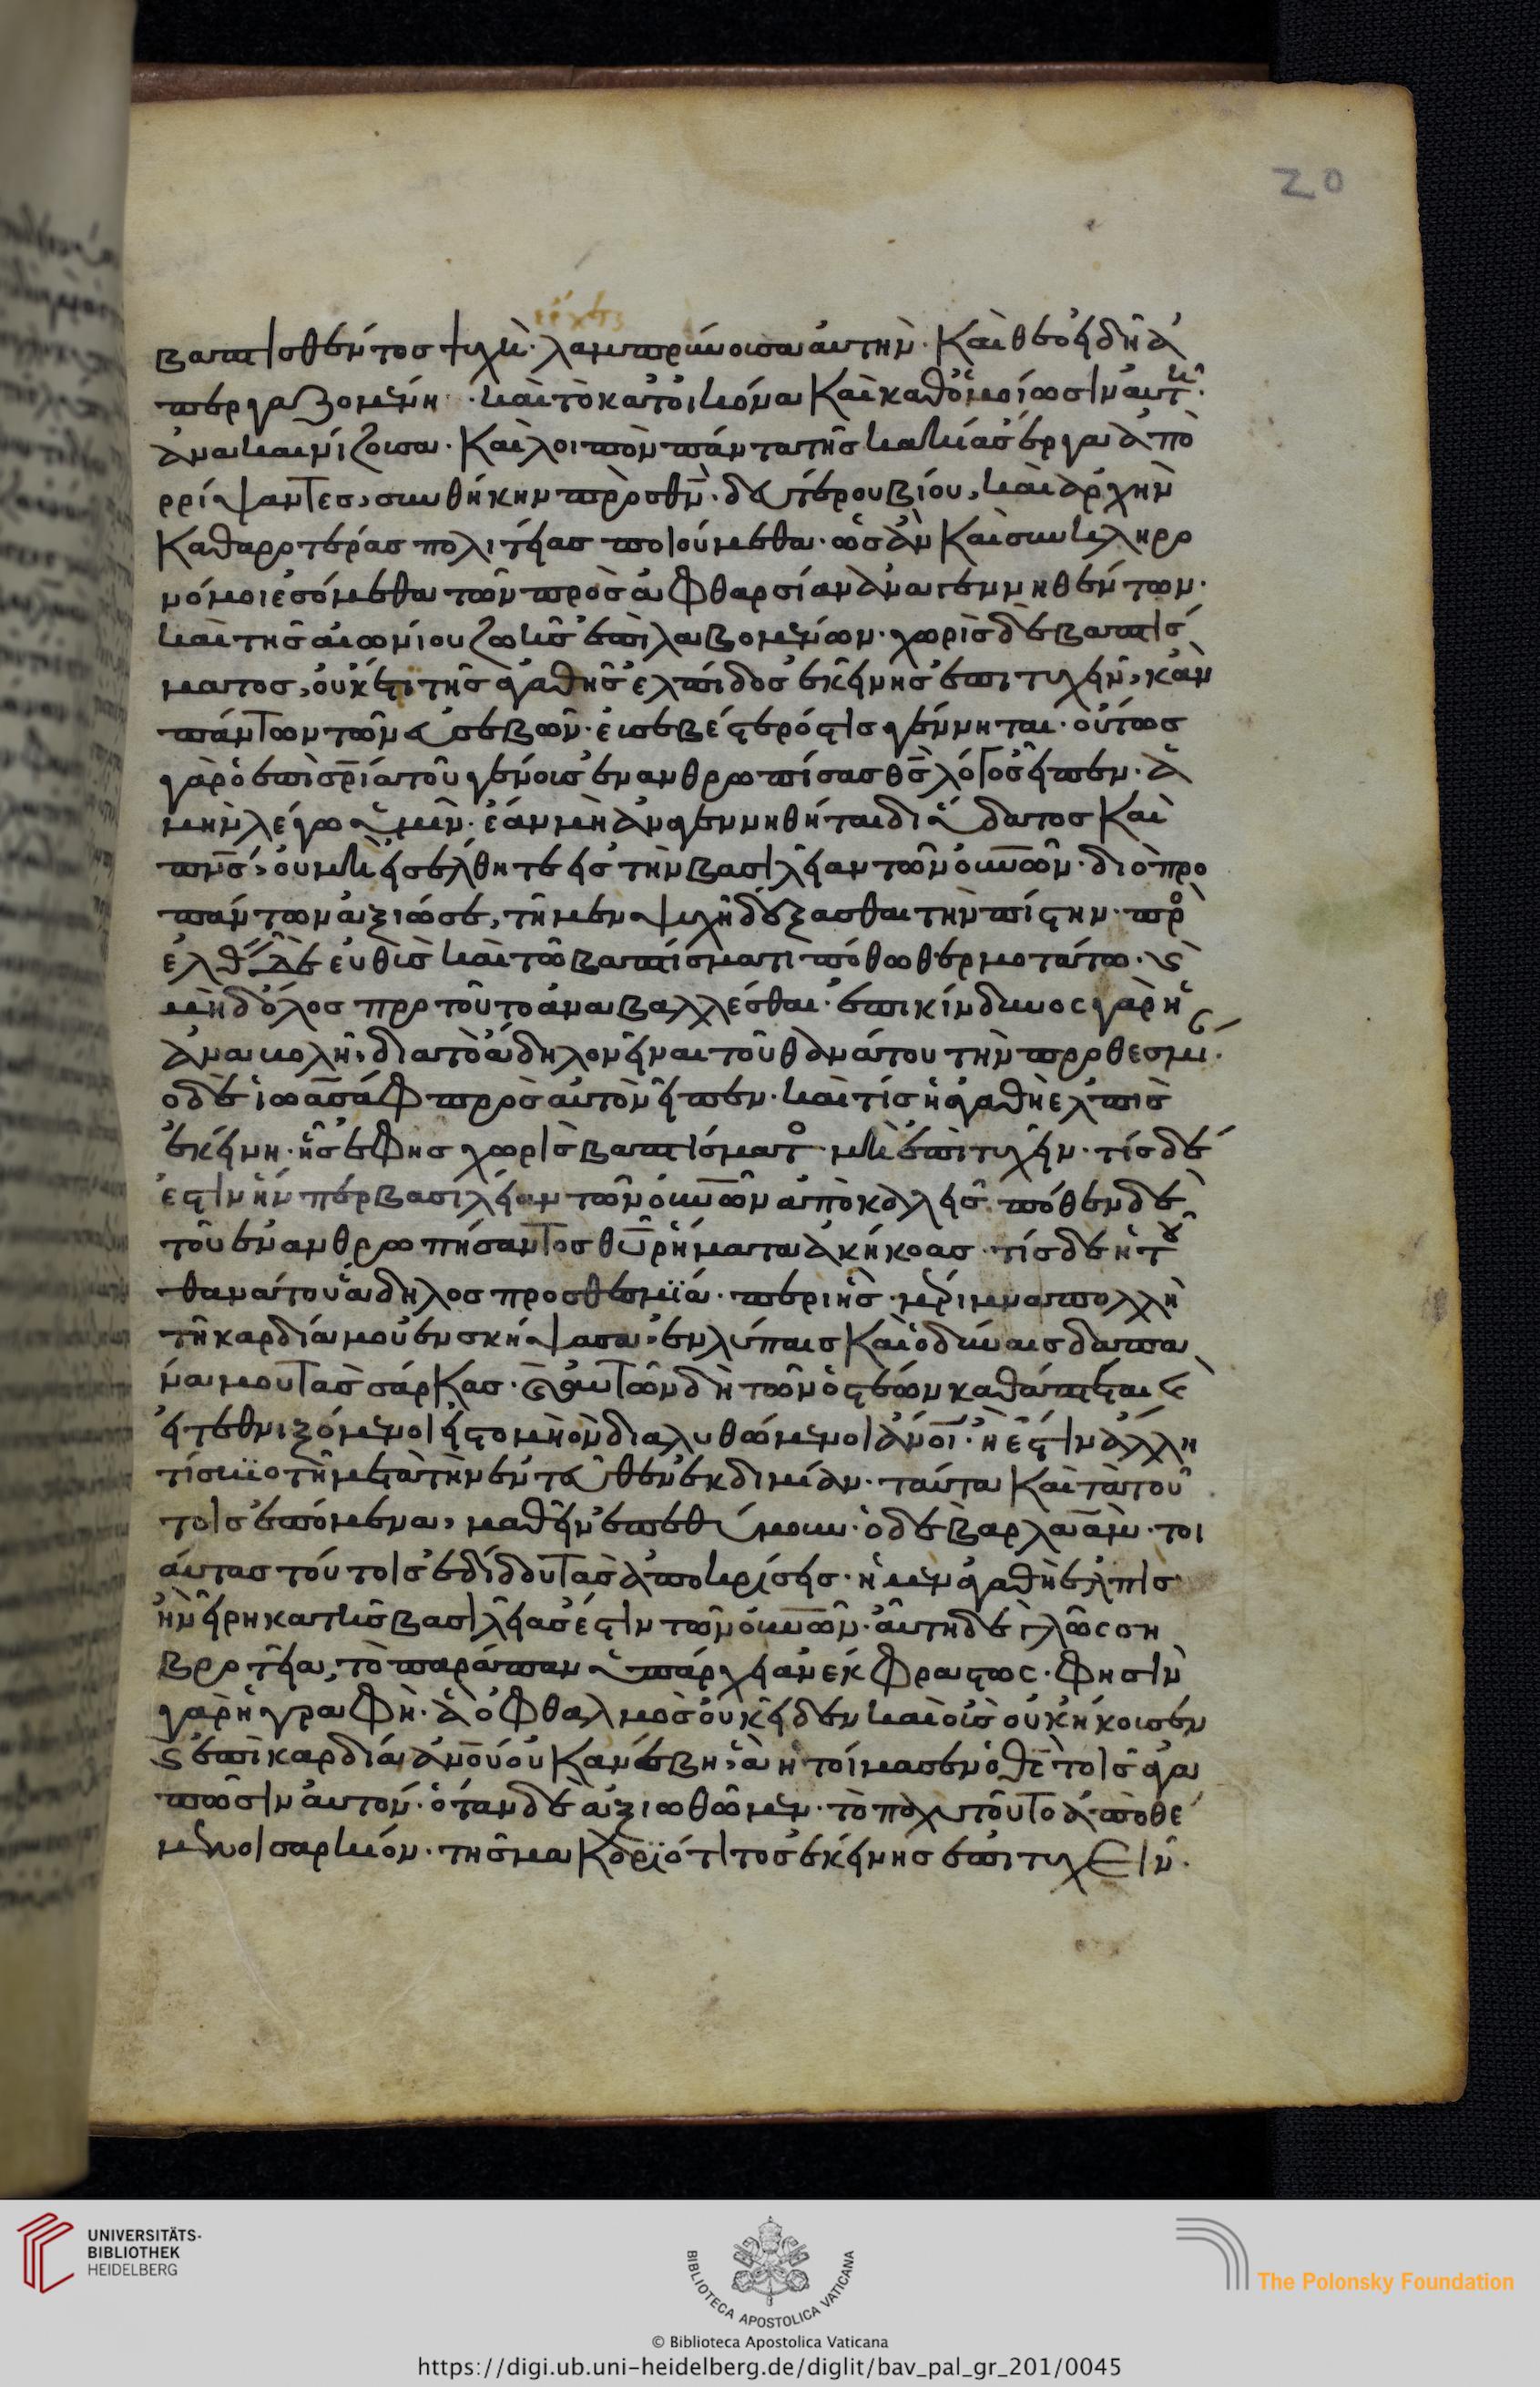 20
βαπτισθέντος ψυχὴ· λαμπρύνουσα αὐτὴν· καὶ θεοειδῆ ἀ
περγαζομένη· καὶ τὸ κατ' εἰκόνα καὶ καθ' ὁμοίωσιν αὐτῆ·
ἀνακαινίζουσα· καὶ λοιπὸν πάντα τῆς κακίας ἔργα ἀπο
ρρίψαντες, συνθήκην πρὸς θν̄· δευτέρου βίου, καὶ ἀρχὴν
καθαροτέρας πολιτείας ποιούμεθα· ὡς ἂν καὶ συγκληρο
νόμοι ἐσόμεθα τῶν πρὸς ἀφθαρσίαν ἀναγεννηθέντων·
καὶ τῆς αἰωνίου ζωῆς ἐπιλαβομένων· χωρὶς δὲ βαπτίσ
ματος, οὐκ ἔστι τῆς ἀγαθῆς ἐλπίδος ἐκείνης ἐπιτυχεῖν, κἂν
πάντων τῶν εὐσεβῶν· εὐσεβέστερός τις γένηται· οὕτως
γὰρ ὁ ἐπὶ σρ̄ία τοῦ γένους ἐνανθρωπίσας θς̄ λόγος εἶπεν· ἀ
μὴν λέγω ὑμῖν· ἐὰν μὴ ἀναγεννηθῆται δι' ὕδατος καὶ
πνς̄, οὐ μὴ εἰσέλθητε εἰς τὴν βασιλείαν τῶν οὐνῶν· διὸ πρὸ
πάντων ἀξιῶ σε, τῇ μὲν ψυχῇ δέξασθαι τὴν πίστιν· προ
ελθεῖν δὲ εὐθὺς καὶ τῶ βαπτίσματι πόθω θερμοτάτω· καὶ
μηδόλος πρὸ τοῦτο ἀναβαλλέσθαι· ἐπικίνδυνος γὰρ ἡ
ἀναβολὴ, διὰ τὸ ἄδηλον εἶναι τοῦ θανάτου τὴν προθεσμί·
ὁ δὲ ἰωάσαφ πρὸς αὐτὸν εἶπεν· καὶ τίς ἡ ἀγαθὴ ἐλπὶς
ἐκείνη· ἧς ἔφης χωρὶς βαπτίσματο μὴ ἐπιτυχεῖν· τίς δέ
ἐστιν ἥνπερ βασιλείαν τῶν οὐνῶν ἀποκαλεῖς· πόθεν δὲ
τοῦ ἐνανθρωπήσαντος θῡ ῥήματα ἀκήκοας· τίς δὲ ἡ τοῦ
θανάτου ἄδηλος προσθεσμία· περὶ ἧς μέριμνα πολλὴ
τῇ καρδία μου ἐνσκήψασα· ἐν λύπαις καὶ ὀδύναις δαπα
νᾶ μου τὰς σάρκας· καὶ αὐτῶν δὴ τῶν ὀστέων καθάπτεται
εἰ τεθνηξόμενοι εἰς τὸ μὴ ὂν διαλυθώμενοι ἄνοι· ἢ ἔστιν ἄλλη
τίς βιοτὴ μετὰ τὴν ἐντεῦθεν ἐκδιμίαν· ταῦτα καὶ τὰ τού
τοις ἑπόμενα, μαθεῖν ἐπεθύμουν· ὁ δὲ βαρλαὰμ· τοι
αύτας τούτοις ἐδίδου τὰς ἀποκρίσεις· ἡ μὲν ἀγαθὴ ἐλπὶς
ἣν εἴρηκα τῆς βασιλείας ἐστὶν τῶν οὐνῶν· αὕτη δὲ γλώσση
βροτεία, τὸ παράπαν ὑπάρχει ἀνέκφραστος· φησὶν
γὰρ ἡ γραφὴ· ἃ ὀφθαλμὸς οὐκ εἶδεν καὶ οὖς οὐκ ἤκουσεν
καὶ ἐπὶ καρδίαν ἀνου οὐκ ἀνέβη, ἃ ἡτοίμασεν ὁ θς̄ τοῖς ἀγα
πῶσιν αὐτόν· ὅταν δὲ ἀξιωθῶμεν· τὸ παχὺ τοῦτο ἀποθέ
μενοι σαρκίον· τῆς μακαριότιτος ἐκείνης ἐπιτυχεῖν·
UNIVERSITÄTS-
BIBLIOTHEK
HEIDELBERG
BIBLIOTECA APOSTOLICA VATICANA
The Polonsky Foundation
© Biblioteca Apostolica Vaticana
https://digi.ub.uni-heidelberg.de/diglit/bav_pal_gr_201/0045